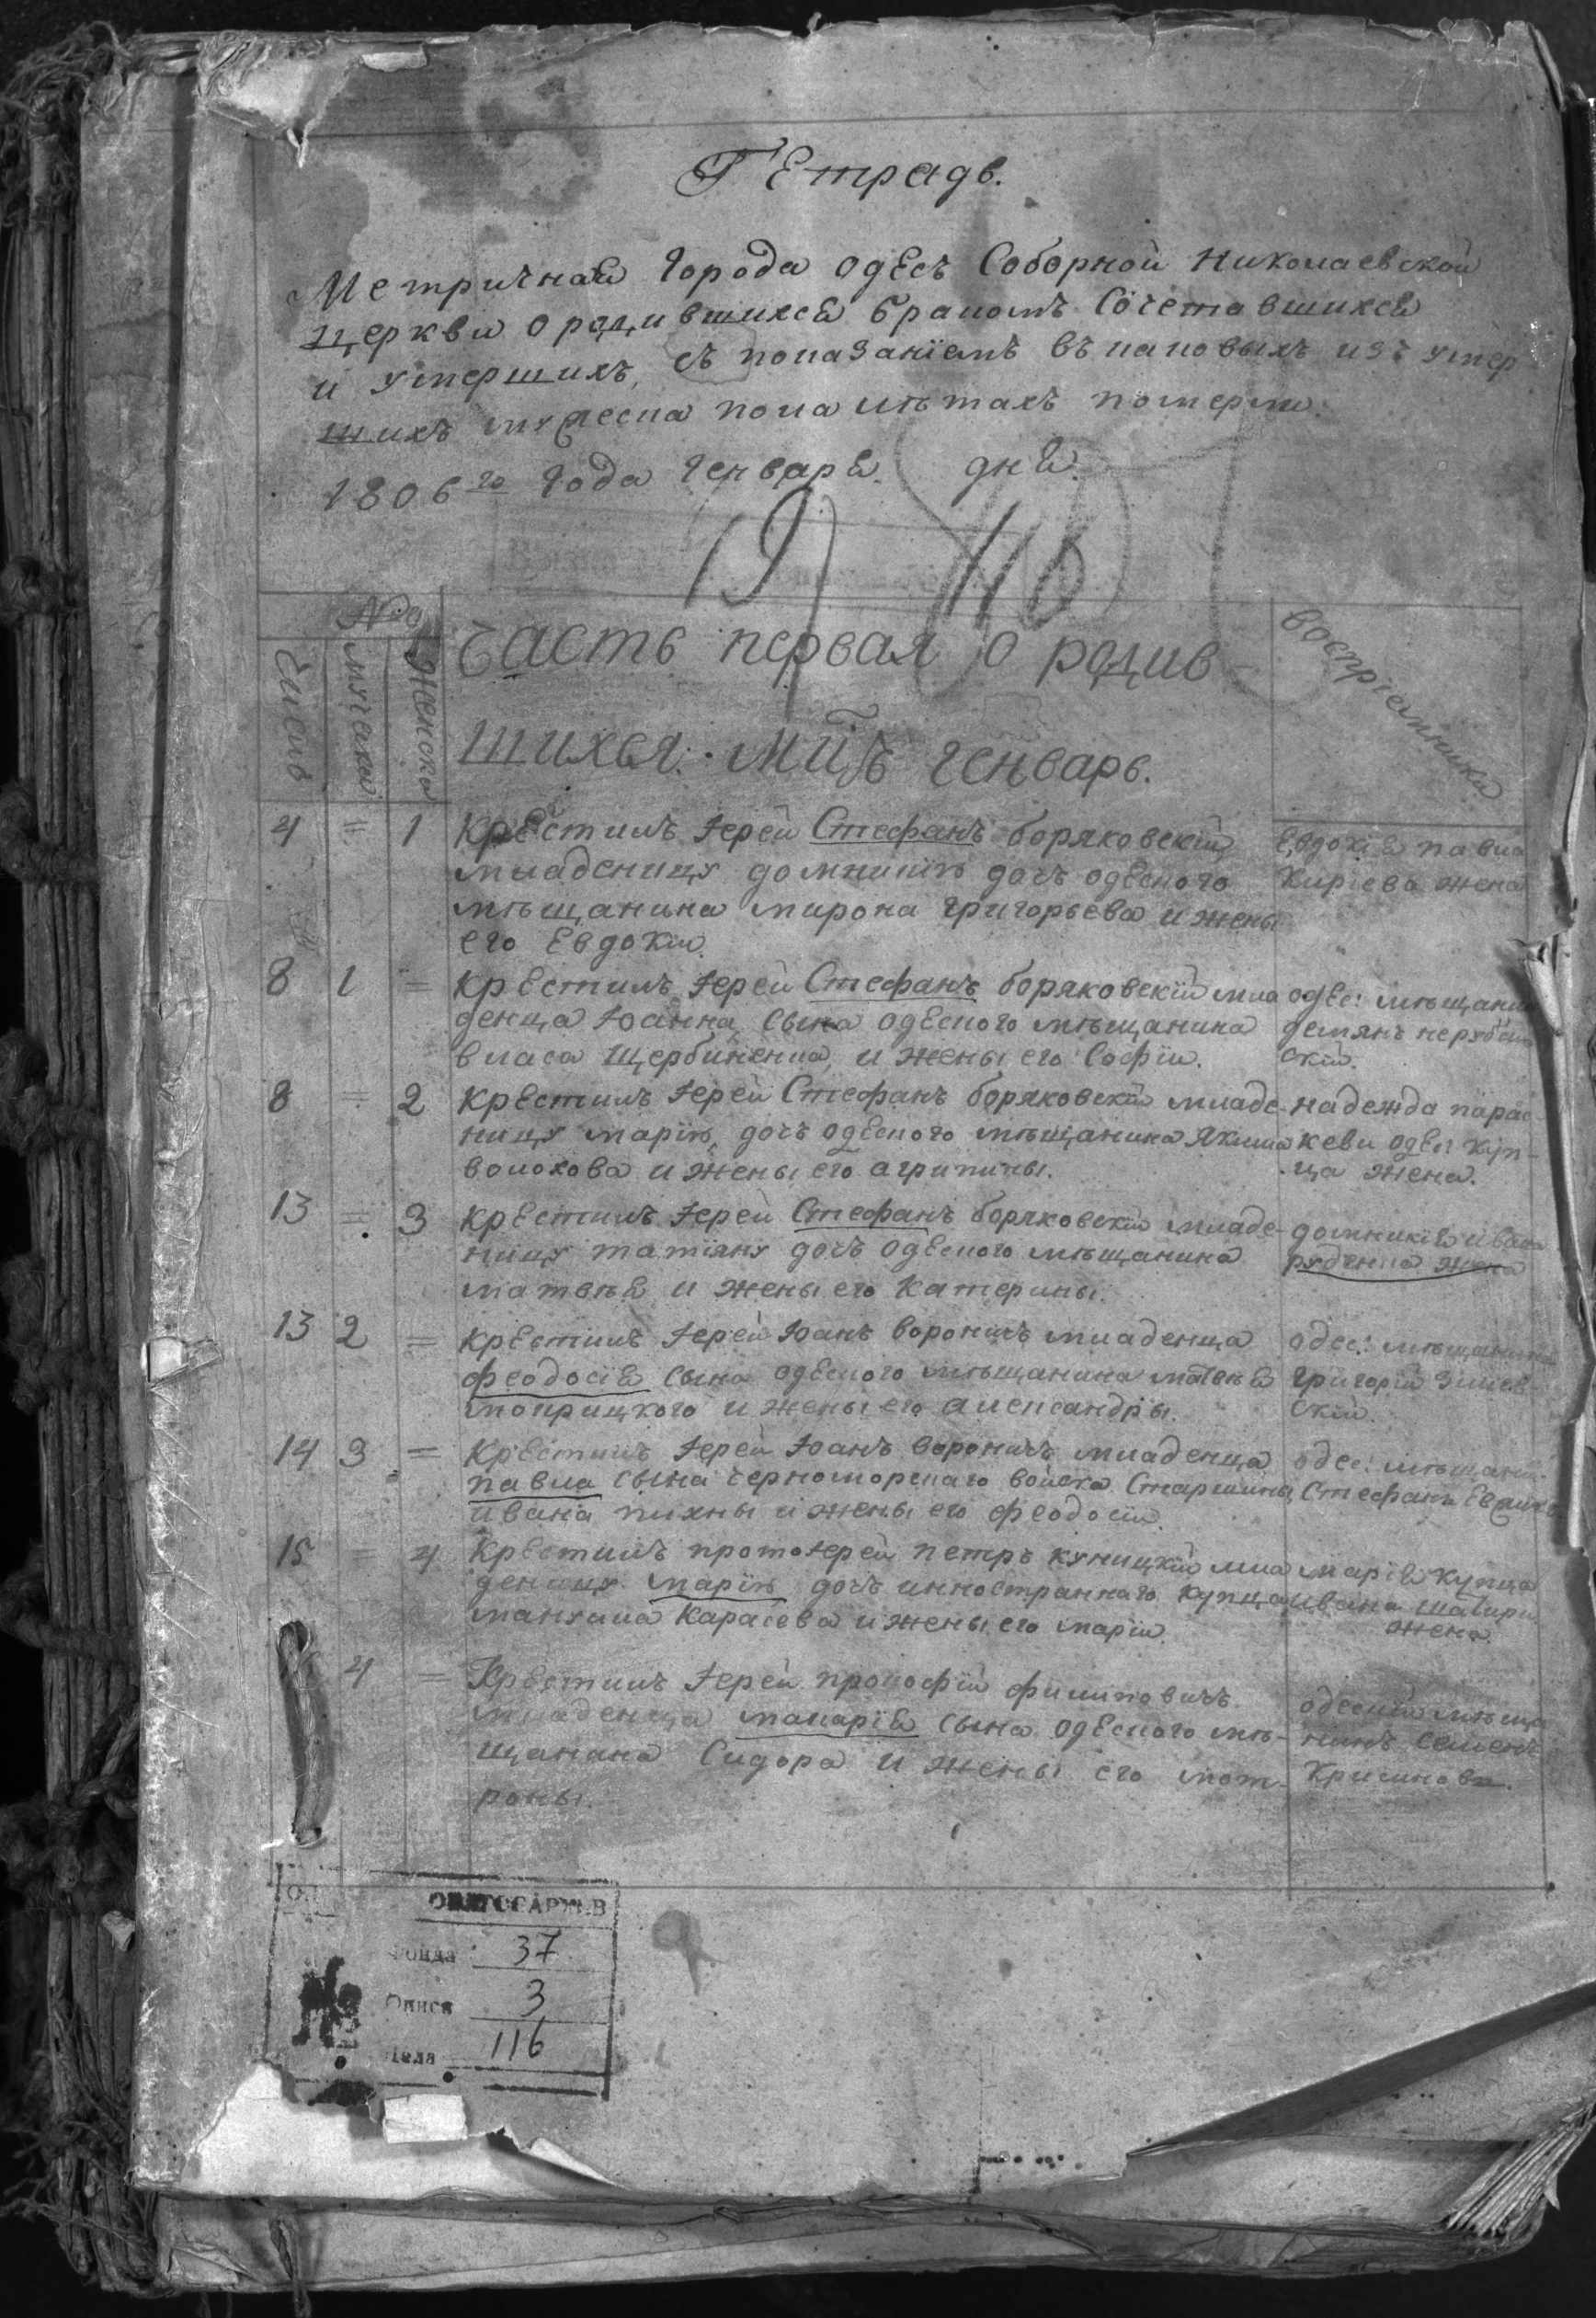 Тетрадь.
Метричная города одесъ Соборной николаевской
церкви о родившихся бракомъ Сочетавшихся
и умершихъ, съ показанїемъ въ каковыхъ изъ умер
шихъ мужеска пола лѣтахъ померли.
1806го года генваря. дня.
19 116
№
Число
мужеска
Женска
Часть первая о родив
шихся. мцъ генварь.
воспрїемники
4 = 1 крестилъ Іерей Стефанъ боряковскїй
младеницу домникїю дочь одескаго
мѣщанина мирона григорьева и жены
его Евдокїи.
Евдокїя павла
Кирїева жена
8 1 = крестилъ Іерей Стефанъ боряковскїй мла
денца Іоанна, сына одескаго мѣщанина
власа щербиненка, и жены его Софїи.
одес: мѣщанин
демянъ
скїй.
8 = 2 крестилъ Іерей Стефанъ боряковскїй младе
ницу марїю, дочь одескаго мѣщанина якима
волохова и жены его агрипины.
надежда парас
кеви одес: куп-
ца жена.
13 = 3 крестилъ Іерей Стефанъ боряковскїй младе-
ницу татїяну дочь одескаго мѣщанина
матвѣя и жены его Катерины.
домникїя ивана
руденка жена
13 2 = крестилъ Іерей Іоанъ вороничъ младенца
феодосїя сына одескаго мѣщанина матвѣя
мокрицкого и жены его александры.
одес: мѣщанинъ
григорїй
скїй.
14 3 = Крестилъ Іерей Іоанъ вороничъ младенца
павла сына черноморскаго войска Старшины
ивана пихны и жены его феодосїи.
одес: мѣщанин
Стефанъ
15 = 4 Крестилъ протоіерей петръ куницкїй мла
деницу марїю дочь инностраннаго купца
мануила Карасева и жены его марїи.
марїя купца
ивана
жена.
4 = Крестилъ Іерей прокофїй филиповичъ
младенца макарїя сына одескаго мѣ-
щанина Сидора и жены его мот-
роны.
одескїй мѣща
нинъ Семенъ
ОБЛГОСАРХИВ
Фонда 37
Описи 3
Дела 116